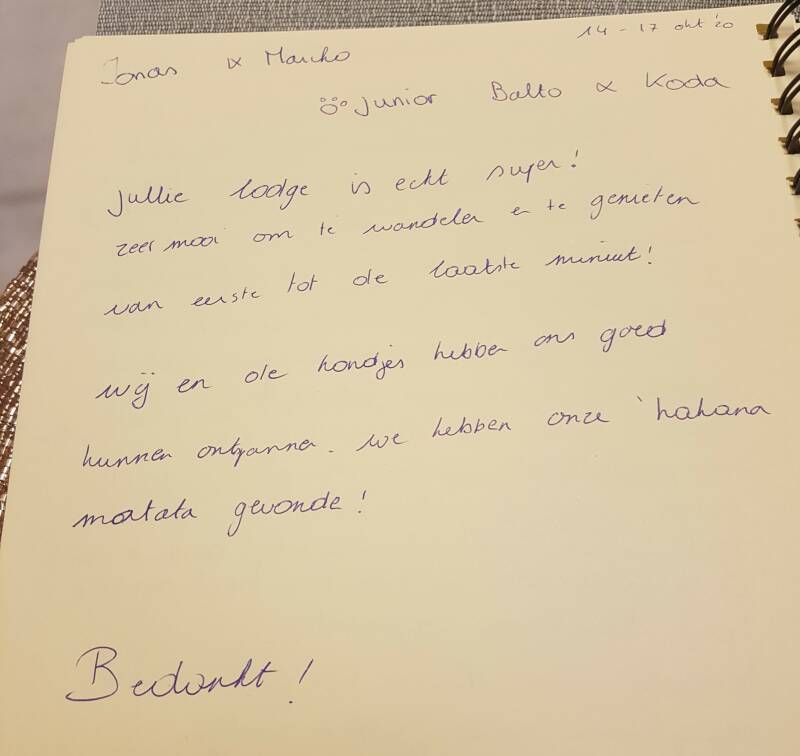 14 - 17 okt '20
Jonas & Marcko
Junior Balto & Koda
Jullie lodge is echt super!
zeer mooi om te wandelen en te genieten
van eerste tot de laatste minuut!
wij en de hondjes hebben ons goed
kunnen ontspannen. we hebben onze 'hakuna
matata gevonde!
Bedankt!